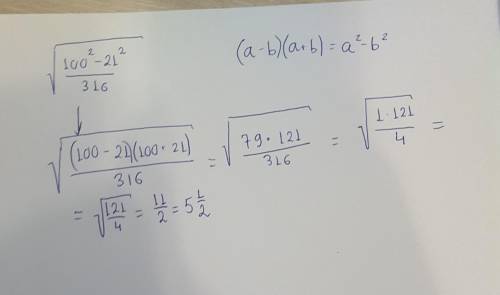 √((100² - 21²)/316)
(a-b)(a+b) = a² - b²
√((100 - 21)(100 · 21)/316) = √((79 · 121)/316) = √((1 · 121)/4) =
= √(121/4) = 11/2 = 5 1/2